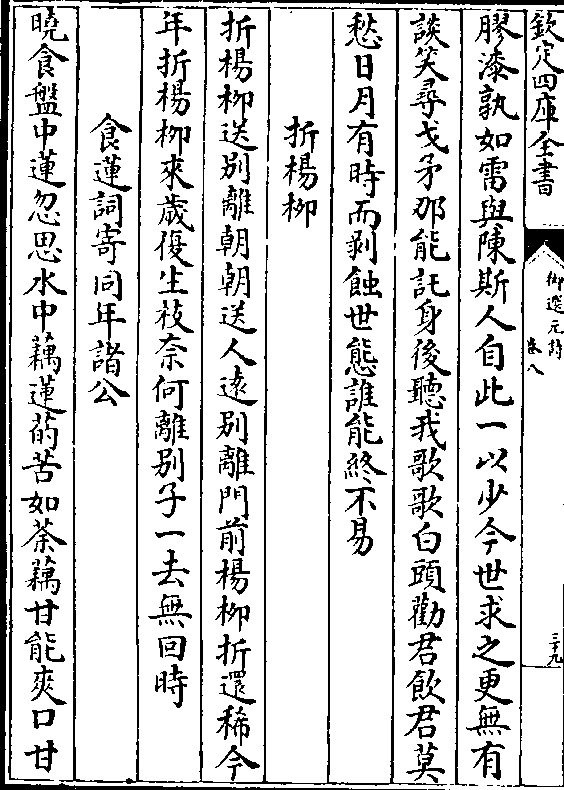 欽定四庫全書
御選元詩
卷八
三十九
膠漆孰如雷與陳斯人自此一以少今世求之更無有
談笑尋戈矛那能託身後聽我歌歌白頭勸君飲君莫
愁日月有時而剥蝕世態誰能終不易
折楊柳
折楊柳送別離朝朝送人遠別離門前楊柳折還稀今
年折楊柳來歲復生枝奈何離別子一去無回時
食蓮詞寄同年諸公
曉食盤中蓮忽思水中藕蓮菂苦如荼藕甘能爽口甘